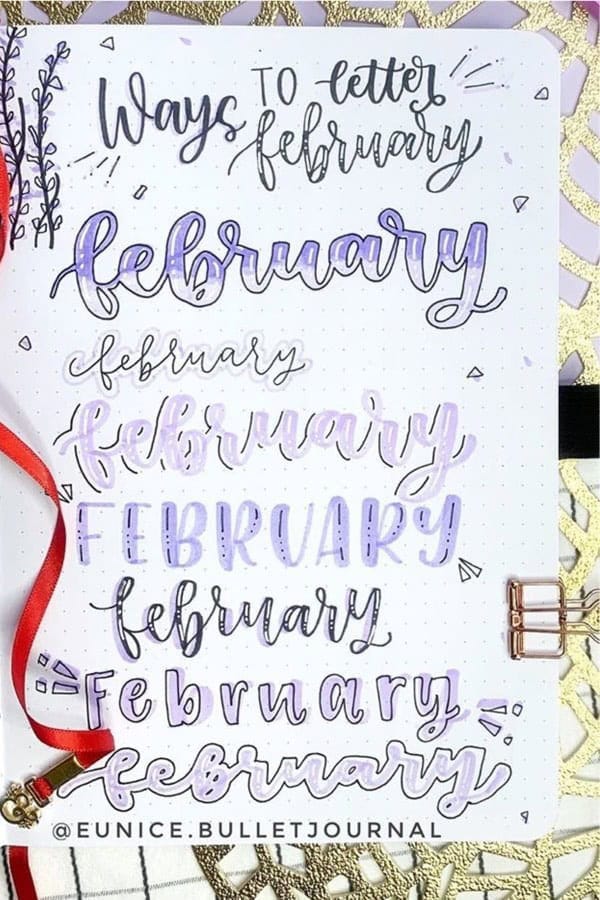 Ways TO letter
february
february
february
february
FEBRUARY
february
February
february
@EUNICE.BULLETJOURNAL